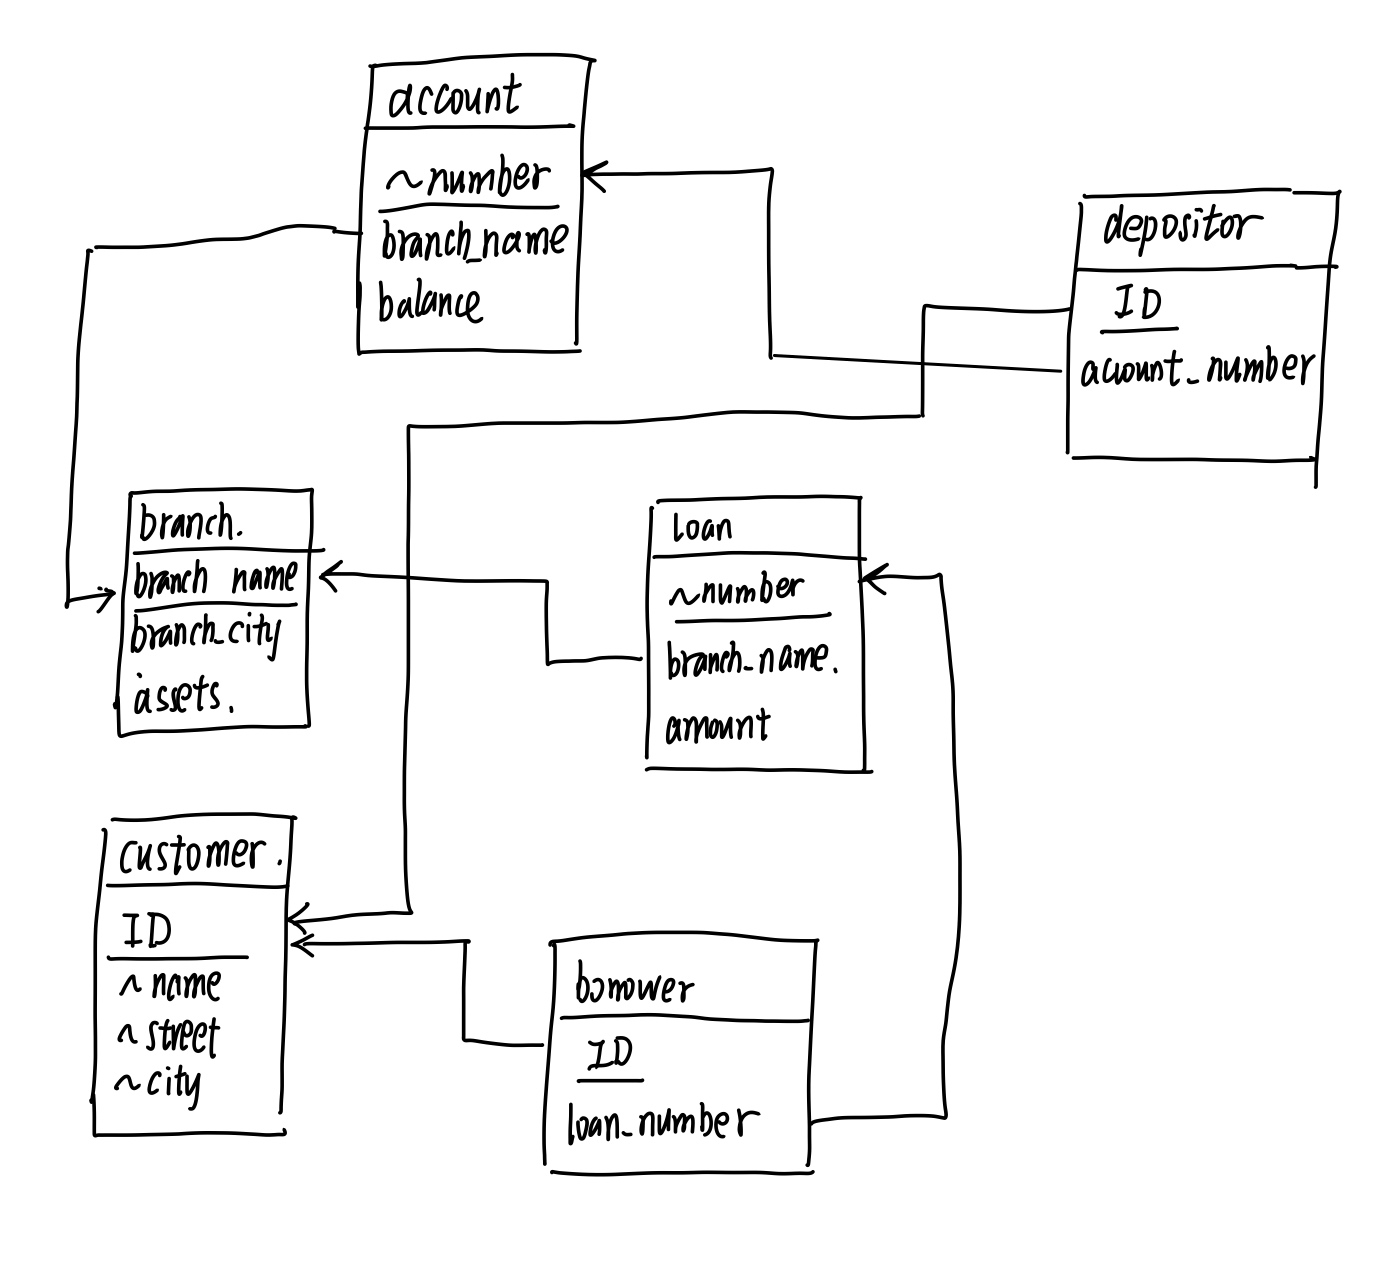 account
~number
branch_name
balance
depositor
ID
account_number
branch.
branch name
branch_city
assets.
loan
~number
branch_name.
amount
customer.
ID
~name
~street
~city
borrower
ID
loan_number